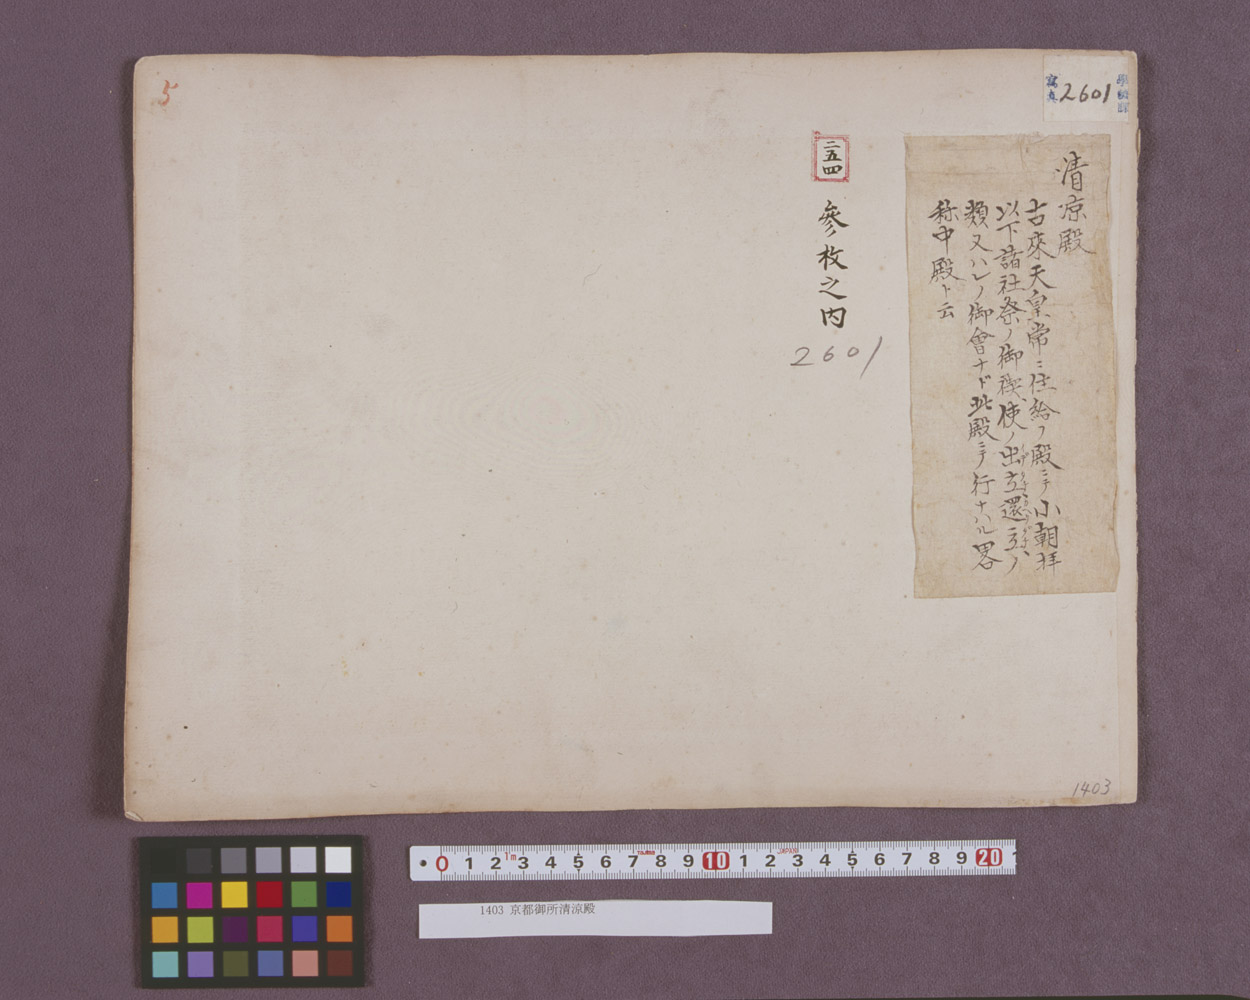 5
寫真
2601
學藝課
清凉殿
古來天皇常ニ住給フ殿ニテ小朝拜
以下諸社祭ノ御禊、使ノ出立還立ノ
類又ハレノ御會ナド此殿ニテ行ナハル畧
称中殿ト云
二五四
參枚之内
2601
1403
0 1 2 1m 3 4 5 6 7 8 9 10 1 2 3 4 5 6 7 8 9 20 1
1403 京都御所清涼殿